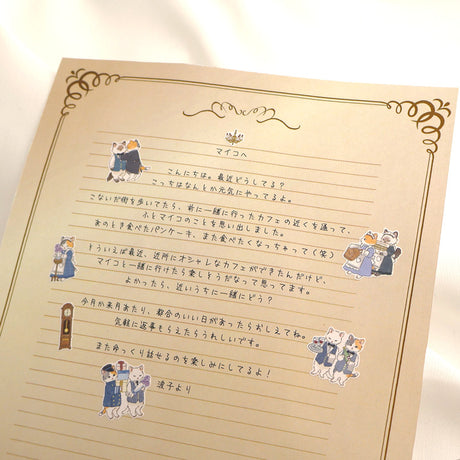 マイコへ
こんにちは。最近どうしてる？
こっちはなんとか元気にやってるよ。
こないだ街を歩いてたら、前に一緒に行ったカフェの近くを通って、
ふとマイコのことを思い出しました。
あのとき食べたパンケーキ、また食べたくなっちゃって(笑)
そういえば最近、近所にオシャレなカフェができたんだけど、
マイコと一緒に行けたら楽しそうだなって思ってます。
よかったら、近いうちに一緒にどう？
今月か来月あたり、都合のいい日があったらおしえてね。
気軽に返事もらえたらうれしいです。
またゆっくり話せるのを楽しみにしてるよ！
渡子より